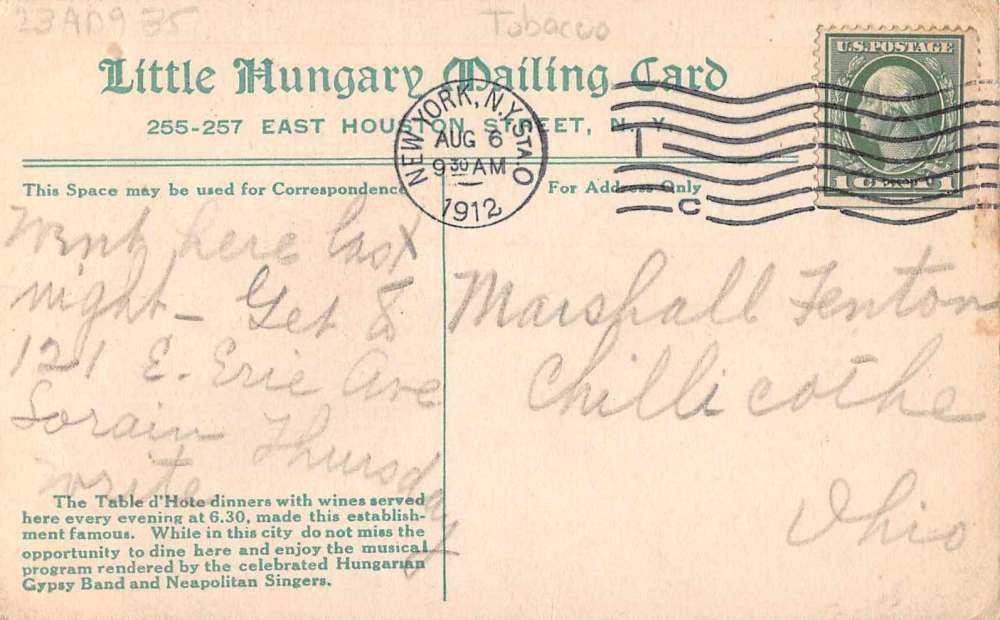 23AD9 35
Tobacco
Little Hungary Mailing Card
255-257 EAST HOUSTON STREET, N. Y.
NEW YORK, N.Y. STA.O
AUG 6
9 30 AM
1912
U.S. POSTAGE
1 CENT 1
C
This Space may be used for Correspondence
For Address Only
Went here last
night - Get to
121 E. Erie Ave
Lorain Thursday
Write
Marshall Fenton
Chillicothe
Ohio
The Table d'Hote dinners with wines served
here every evening at 6.30, made this establish-
ment famous. While in this city do not miss the
opportunity to dine here and enjoy the musical
program rendered by the celebrated Hungarian
Gypsy Band and Neapolitan Singers.